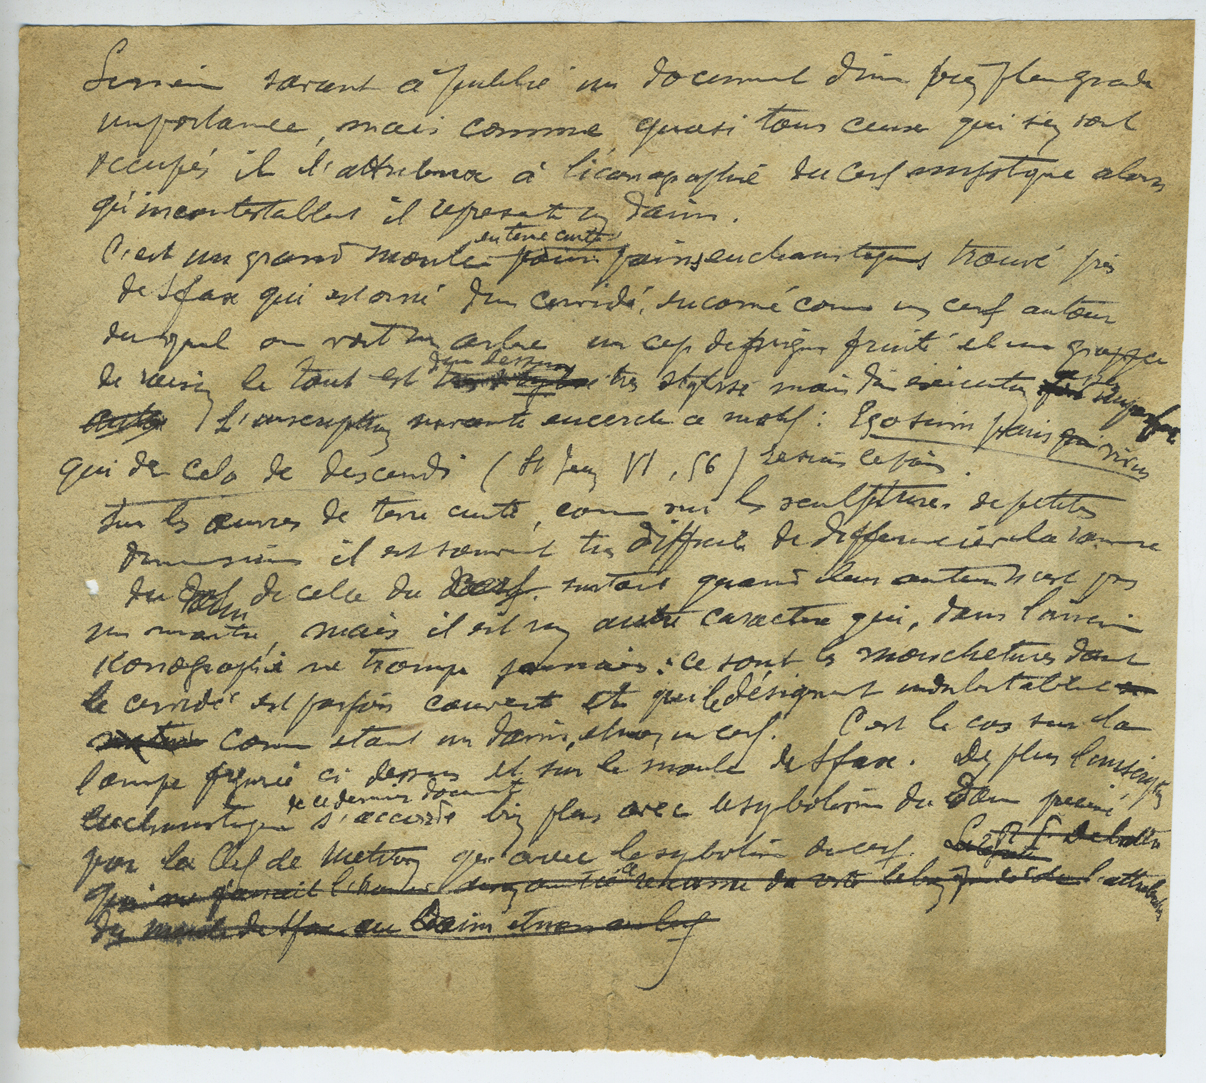 savant a publié un document d'une bien plus grande
importance, mais comme quasi tous ceux qui s'en sont
occupés il l'attribue à l'iconographie du cerf mystique alors
qu'incontestablement il représente un daim.
en terre cuite
C'est un grand moule pour pains eucharistiques trouvé près
de Sfax qui est orné d'un cervidé, encorné comme un cerf autour
duquel on voit un arbre un cep de vigne fruité et une grappe
d'un dessin
de raisin le tout est très stylisé mais d'une exécution
L'inscription suivante encercle ce motif : Ego sum panis qui vivus
qui de celo de descendi (St Jean VI, 56) Je suis le pain.
Sur les œuvres de terre cuite, comme sur les sculptures de petites
dimensions il est souvent très difficile de différencier la ramure
du daim de celle du cerf surtout quand leur auteur n'est pas
un maître, mais il est un autre caractère qui, dans l'ancienne
iconographie ne trompe jamais : ce sont les mouchetures dont
le cervidé est parfois couvert et qui le désignent indubitablement
comme étant un daim, et non un cerf. C'est le cas sur la
lampe figurée ci dessus et sur le moule de Sfax. De plus l'inscription
de ce dernier document
eucharistique s'accorde bien plus avec le symbolisme du Daim précisé
par la Clef de Méliton qu'avec le symbolisme du cerf.
l'attribution
du moule de Sfax au Daim et non au Cerf